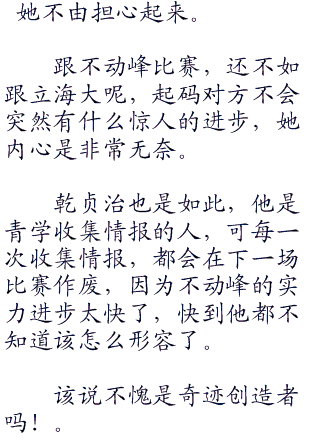 她不由担心起来。
跟不动峰比赛，还不如
跟立海大呢，起码对方不会
突然有什么惊人的进步，她
内心是非常无奈。
乾贞治也是如此，他是
青学收集情报的人，可每一
次收集情报，都会在下一场
比赛作废，因为不动峰的实
力进步太快了，快到他都不
知道该怎么形容了。
该说不愧是奇迹创造者
吗！。